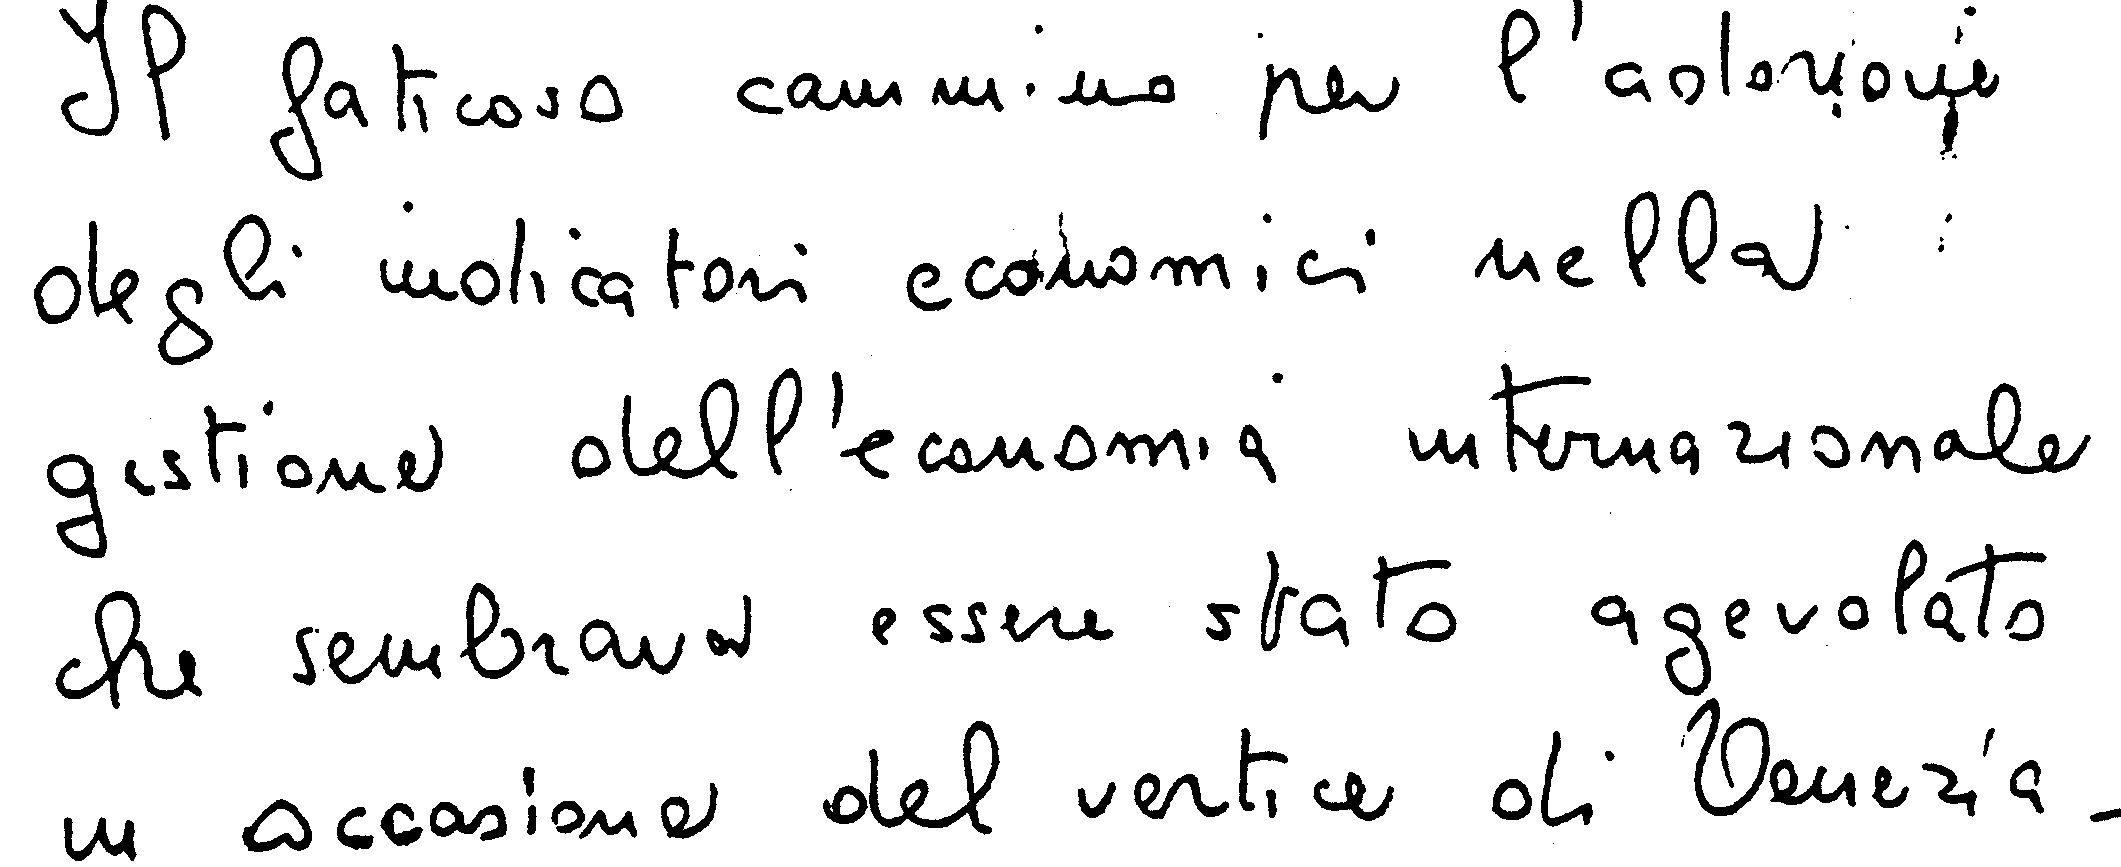 Il faticoso cammino per l'adozione
degli indicatori economici nella
gestione dell'economia internazionale
che sembrava essere stato agevolato
in occasione del vertice di Venezia -